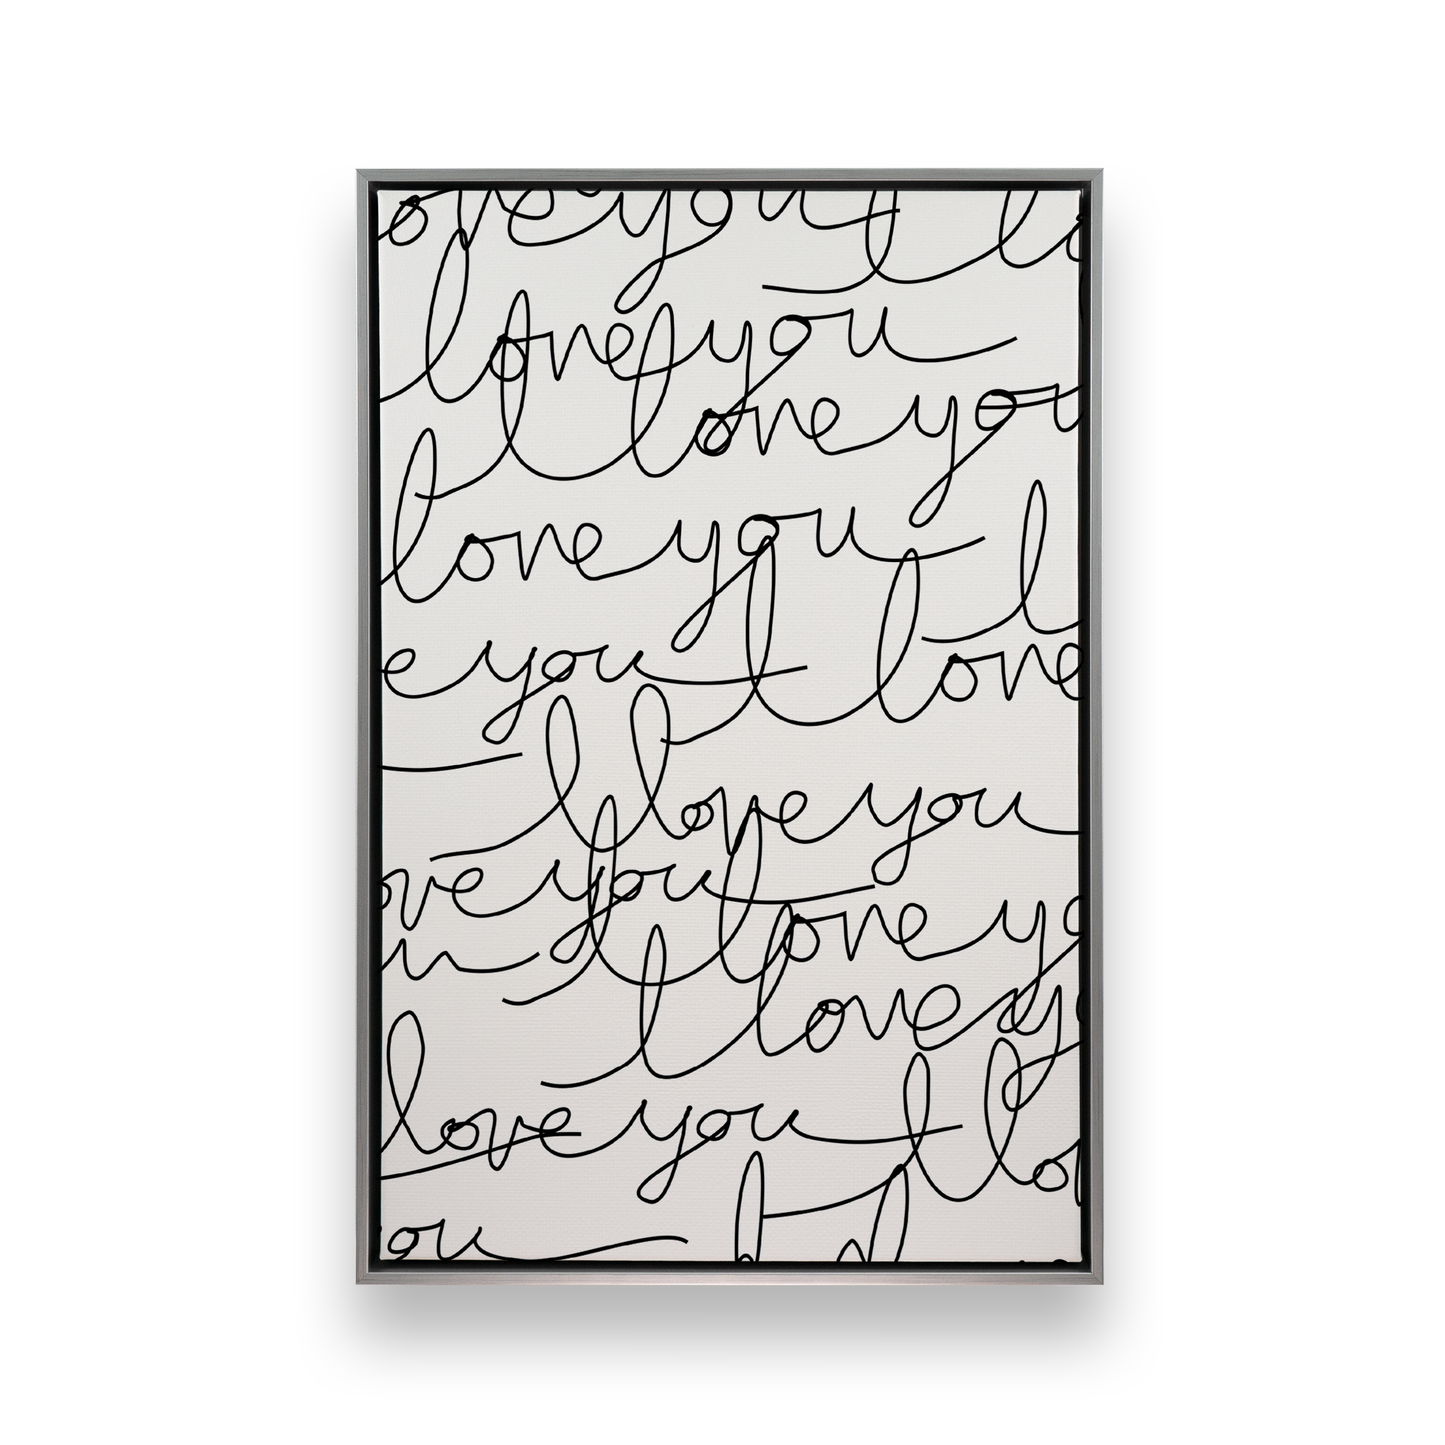 ove you I lo
love you
I love you
love you
I l
e you I love
I love you
ove you I love yo
u I love y
love you I lo
ou I l